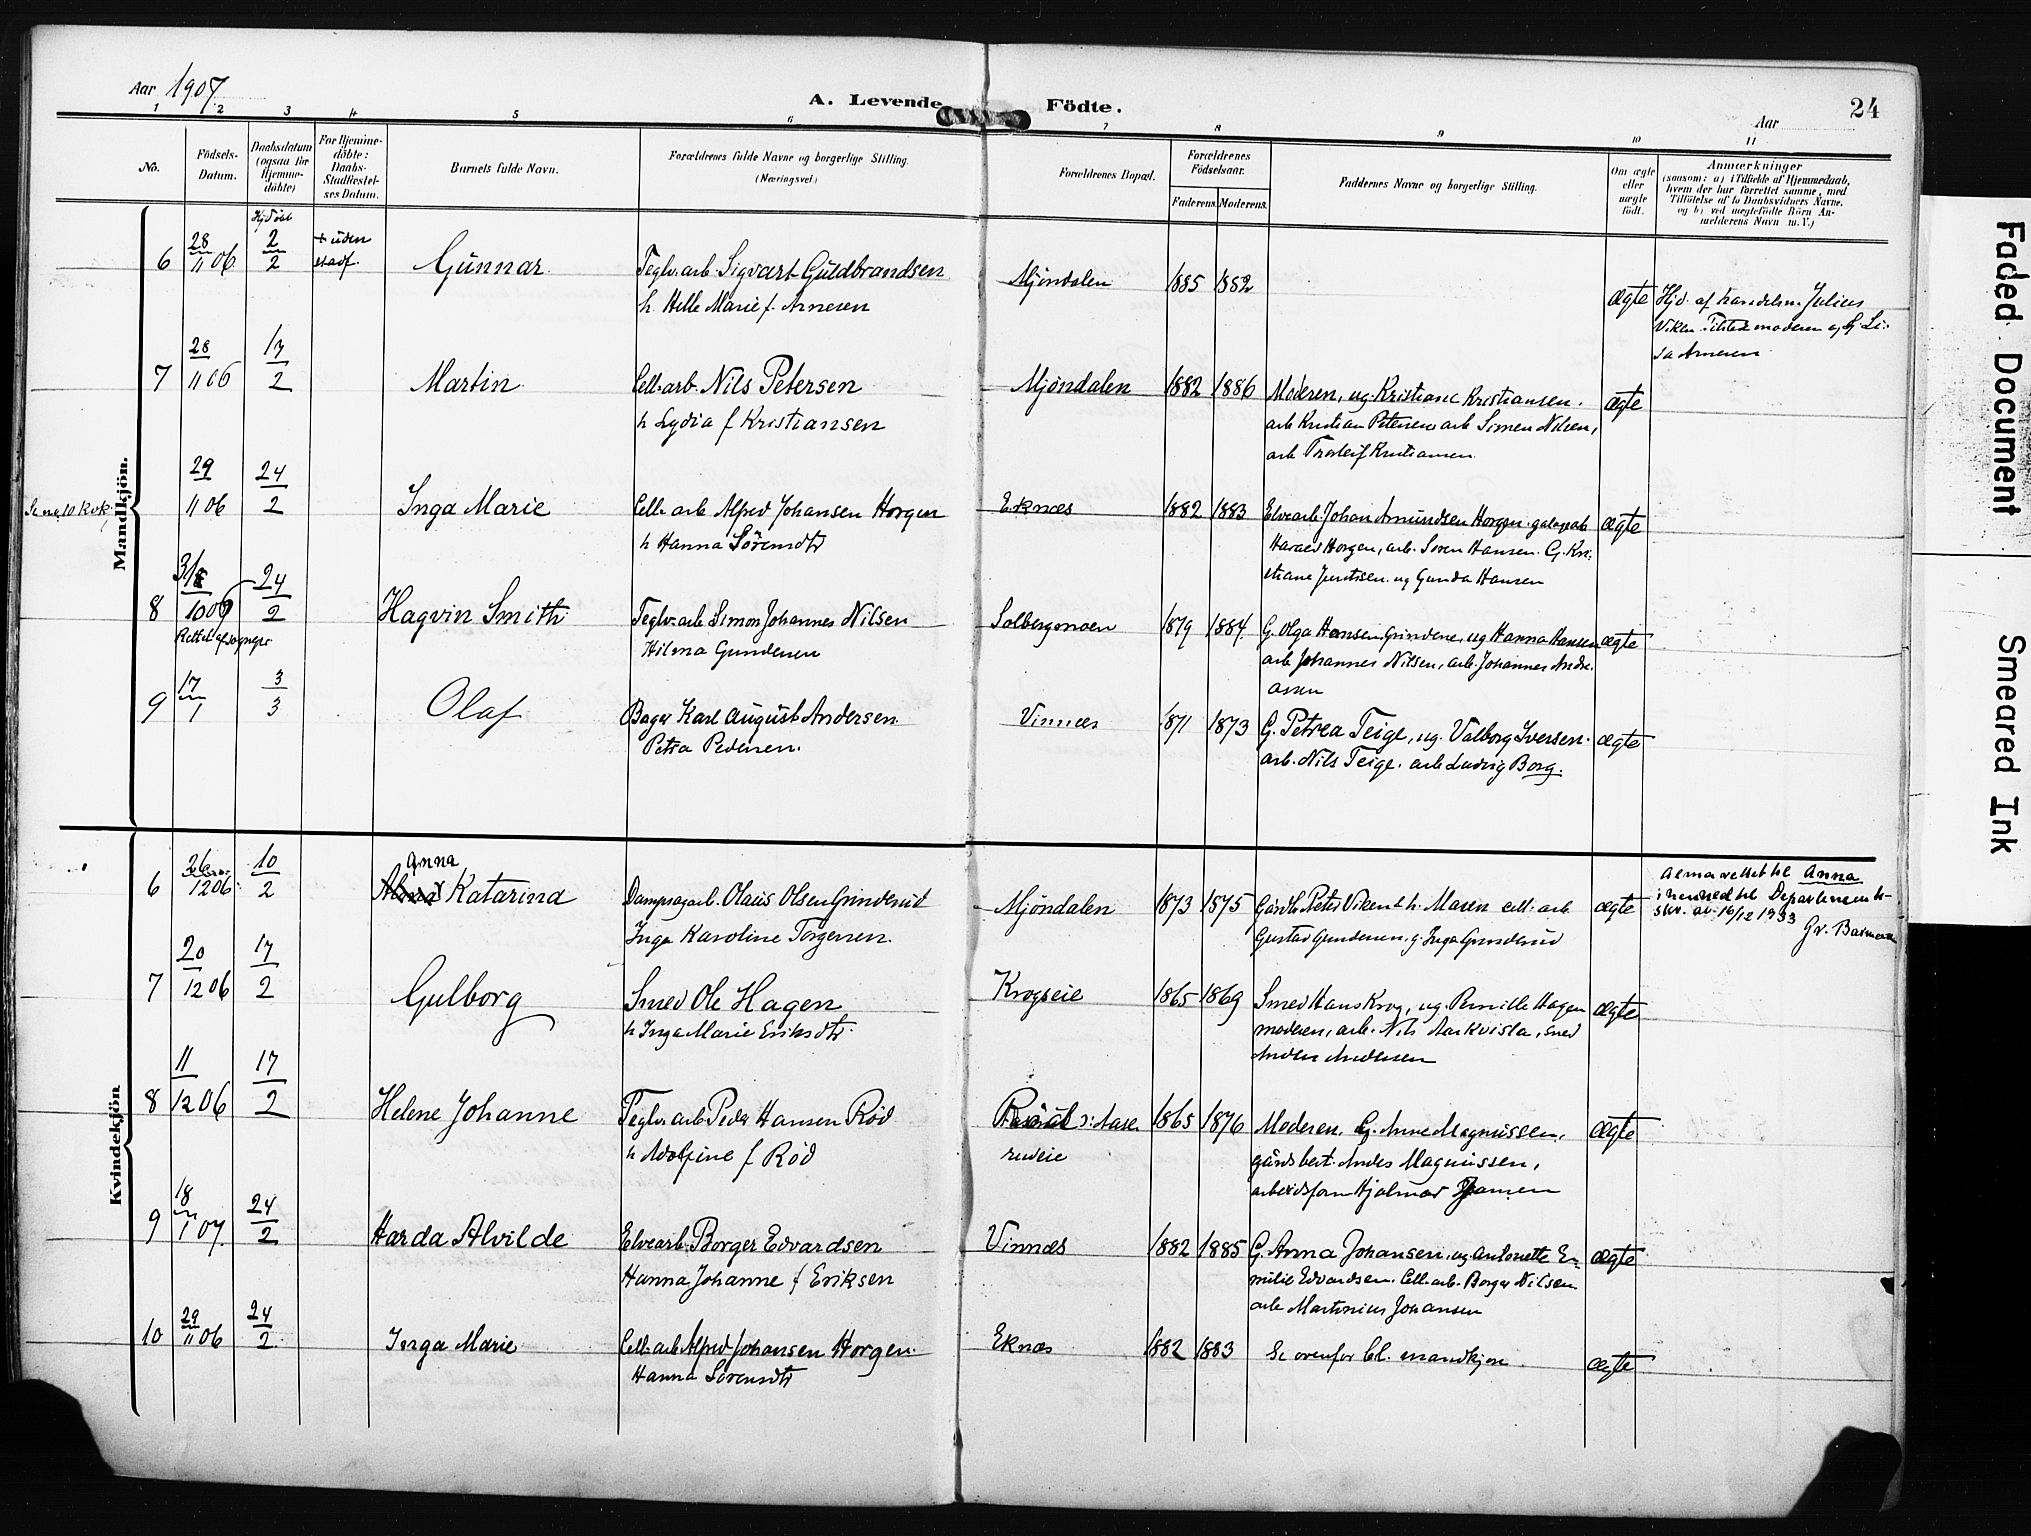 Aar 1907
A. Levende Födte.
24
Aar
1 2 3 4 5 6 7 8 9 10 11
No.
Födsels-
Datum.
Daabsdatum
(ogsaa for
Hjemme-
döbte)
For Hjemme-
döbte:
Daabs-
Stadfæstel-
ses Datum.
Barnets fulde Navn.
Forældrenes fulde Navne og borgerlige Stilling.
(Næringsvei.)
Forældrenes Bopæl.
Forældrenes
Födselsaar.
Faderens. Moderens.
Faddernes Navne og borgerlige Stilling.
Om ægte
eller
uægte
födt.
Anmærkninger
(saasom: a) i Tilfælde af Hjemmedaab,
hvem der har forrettet samme, med
Tilföielse af to Daabsvidners Navne.
og b) ved uægtefödte Börn An-
melderens Navn m. V.)
Mandkjön.
6 28/11 06 2/2 + uden stadf. Gunnar Teglv.arb. Sigvart Guldbrandsen Mjöndalen 1885 1882 ægte Hjd. af handelsm. Julius
h. Helle Marie f. Arnesen
Viken. Tilstede moderen og G. Li-
sa Arnesen
7 28/11 06 17/2 Martin Cell.arb. Nils Petersen Mjöndalen 1882 1886 Moderen, ug. Kristiane Kristiansen. ægte
h. Lydia f. Kristiansen arb. Kristian Petersen arb. Simen Nilsen,
arb. Thorleif Kristiansen
Se no. 10 kvk. 29/11 06 24/2 Inga Marie Cell. arb. Alfred Johansen Horgen Eknæs 1882 1883 Elvearb. Johan Amundsen Horgen ægte
h. Hanna Sörensdtr Harald Horgen, arb. Soren Hansen. G. Kri-
stiane ug Gunda Hansen
8 31/10 06 24/2 Hagvin Smith Teglv.arb. Simon Johannes Nilsen Solbergmoen 1879 1884 G. Olga Hansen Grindene, ug Hanna Hansen ægte
Rettet af sognepr
Hilma Gundersen arb. Johannes Nilsen, arb. Johannes Andre-
asen
9 17/1 3/3 Olaf Bager Karl August Andersen Vinnæs 1871 1873 G. Petrea Teige, ug. Valborg Iversen. ægte
Petra Pedersen. arb. Nils Teige. arb Ludvig Borg.
Kvindekjön
6 26/12 06 10/2 Anna Katarina Dampsagarb. Olaus Olsen Grinderud Mjöndalen 1873 1875 Gårdb. Peter Viken & h. Maren cell. arb. ægte Alma rettet til Anna
Inga Karoline Torgersen. Gustav Gundersen. g. Inga Grinderud
i henhold til Departements-
skr. av 16/12 1933
7 20/12 06 17/2 Gulborg Smed Ole Hagen Krogseie 1865 1869 Smed Hans Krog, ug. Pernille Hagen ægte
h. Inga Marie Eriksdtr. moderen, arb. Nils Aarkvisla, smed
Anders Andersen
8 11/12 06 17/2 Helene Johanne Teglv.arb. Peder Hansen Röd 1865 1876 Moderen, G. Anne Magnussen, ægte
h Adolfine f Röd rudeie gårdsbest. Anders Magnussen,
arbeidsform Hjalmar
9 18/1 07. 24/2 Harda Alvilde Elvearb. Borger Edvardsen Vinnæs 1882 1885 G. Anna Johansen, ug. Antonette E- ægte
Hanna Johanne f Eriksen milie Edvardsen. Cell.arb. Borger Nilsen
arb Martinius Johansen
10 29/11 06 24/2 Inga Marie Cell. arb Alfred Johansen Horgen Eknæs 1882 1883 Se ovenfor bl. mandkjøn. ægte
Hanna Sörensdtr
Faded Document
Smeared Ink